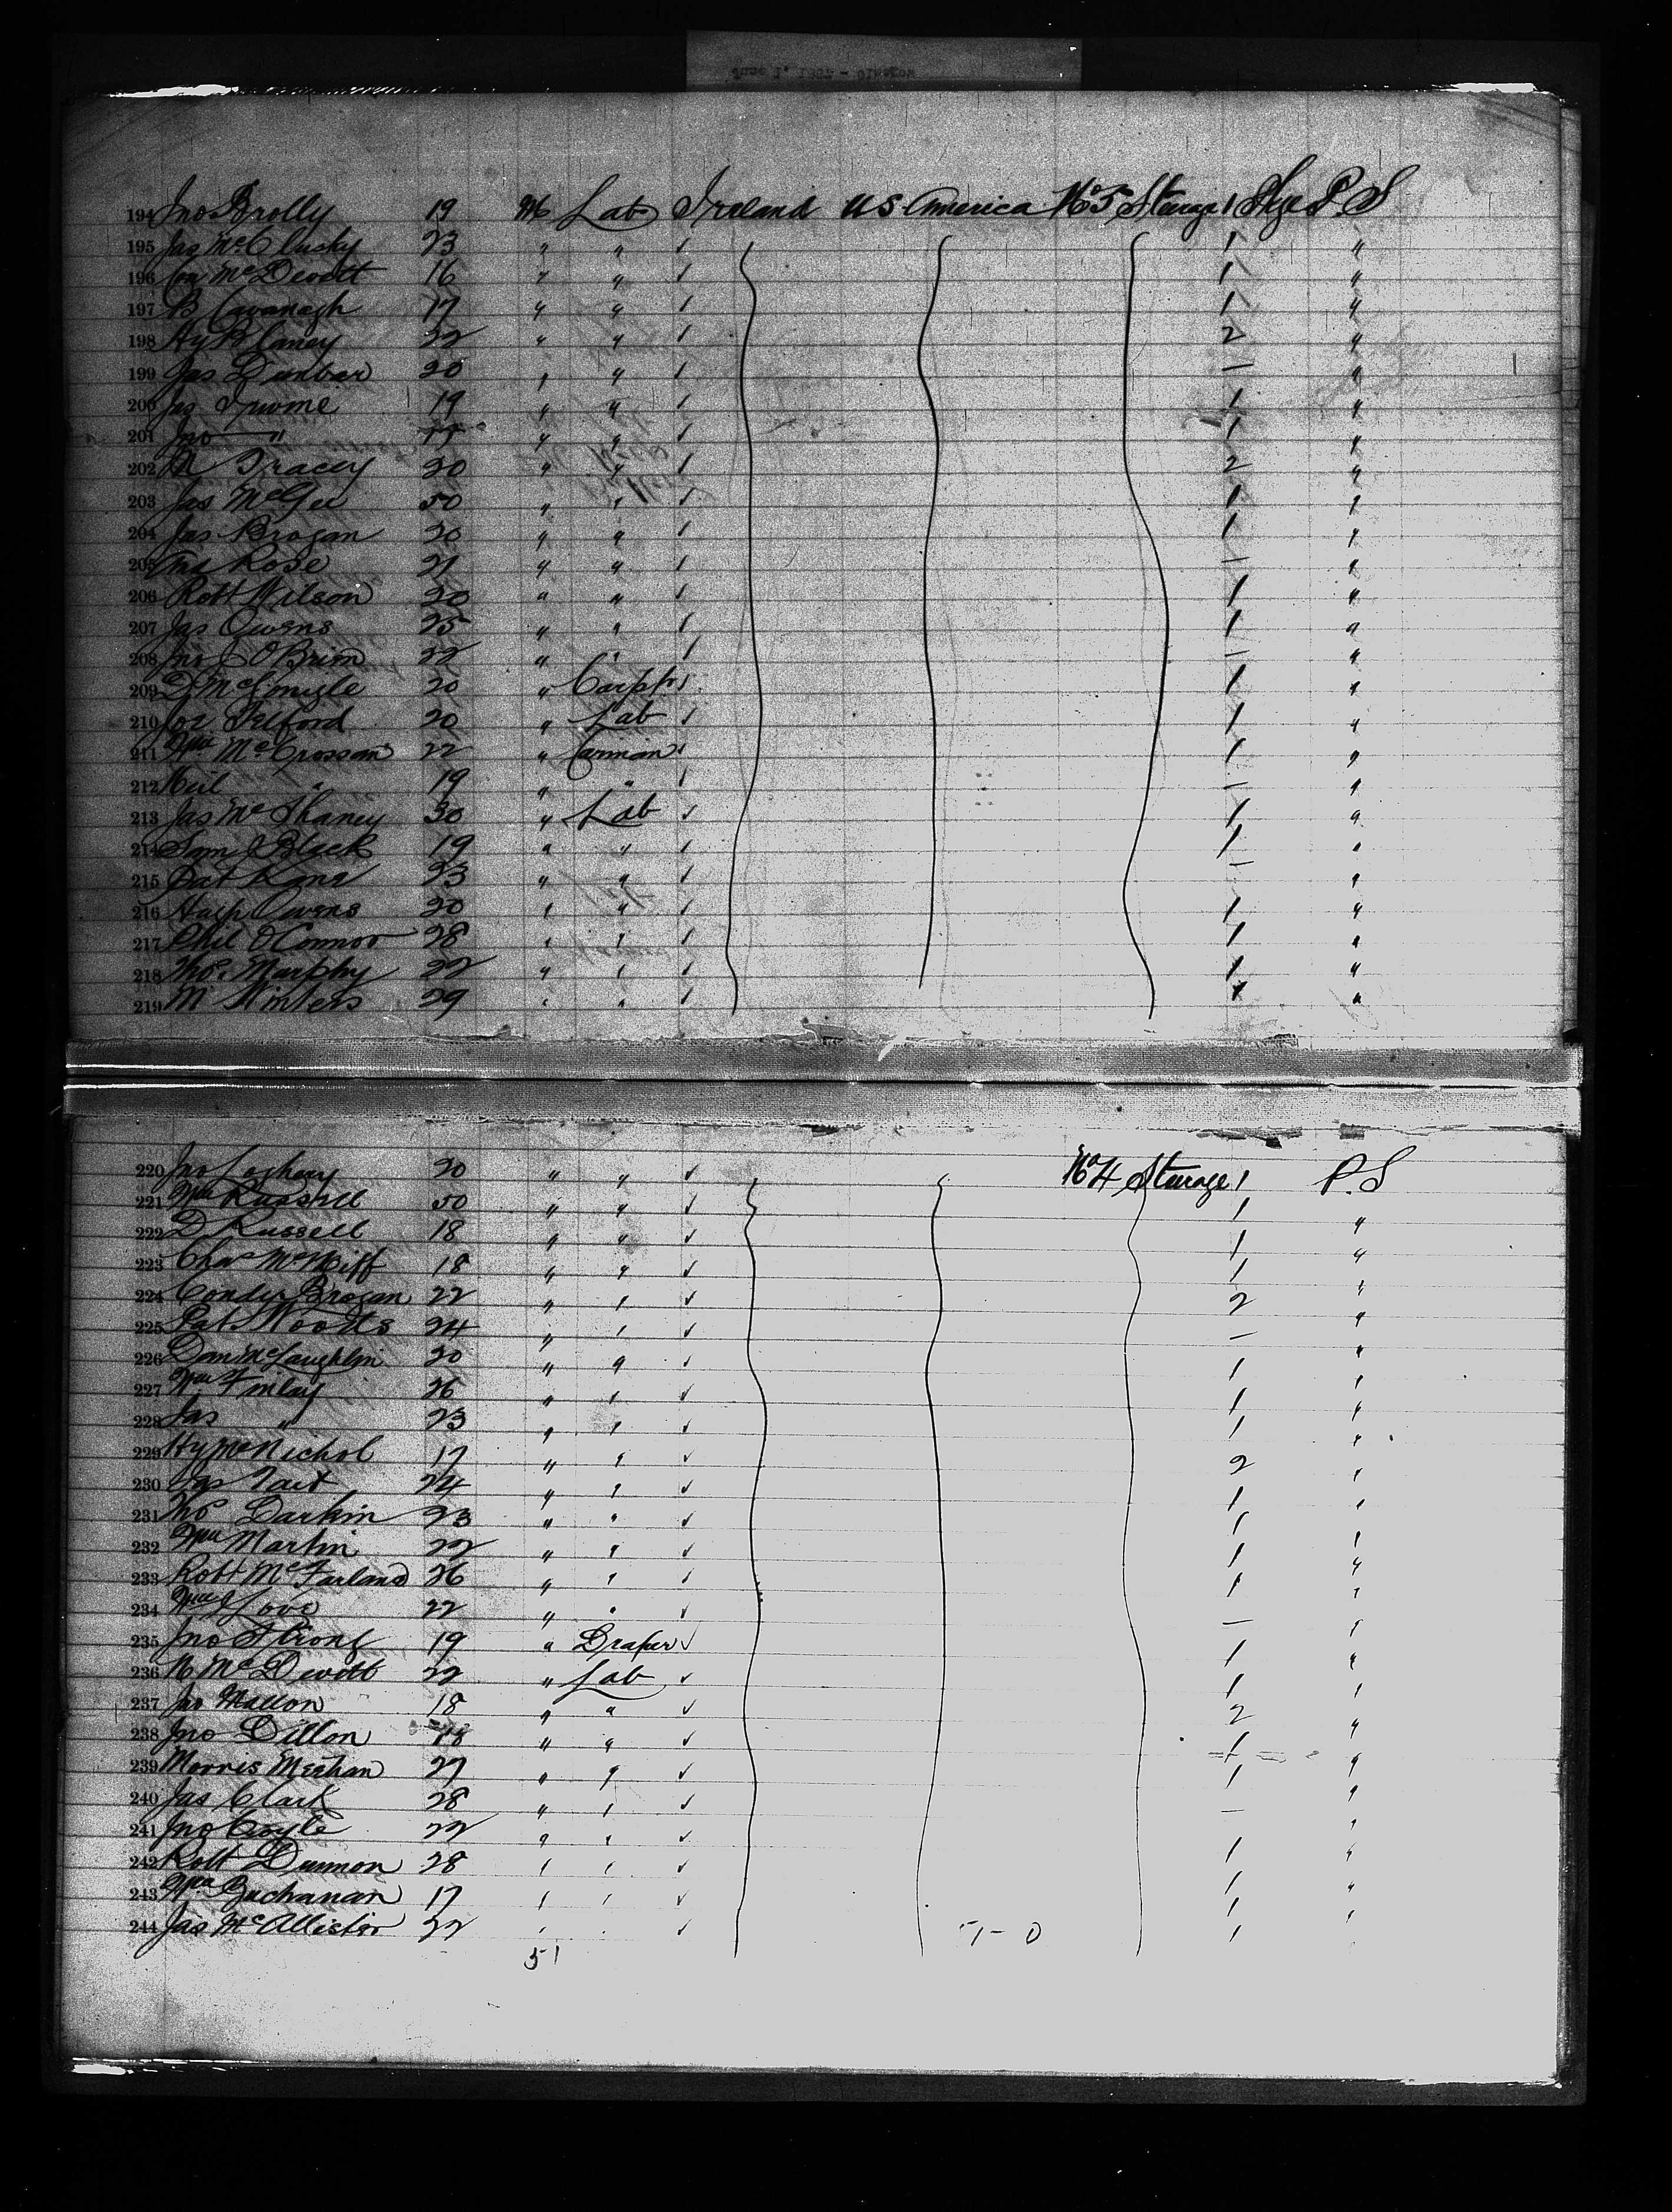 194 Jno Brolly 19 M Lab Ireland U S America No 5 Steerage 1 P. S
195 Jas McClusky 23 " " 1 "
196 Con McDevitt 16 " " 1 "
197 B Cavanagh 17 " " 1 "
198 Hy Blaney 22 " " 2 "
199 Jas Dunbar 20 " " — "
200 Jas Irvine 19 " " 1 "
201 Jno " " " 1 "
202 Tracey 20 " " 2 "
203 Jas McGee 50 " " 1 "
204 Jas Brogan 20 " " 1 "
205 Rose 21 " " — "
206 Robt Wilson 20 " " 1 "
207 Jas Owens 25 " " 1 "
208 Jno O'Brien 22 " " — "
209 D McGonigle 20 " Carptr 1 "
210 Jos Telford 20 " Lab 1 "
211 Wm McCrossan 22 " 1 "
212 Neil " 19 " " — "
213 Jas McShaney 30 " Lab 1 "
214 Saml Black 19 " " 1 "
215 Pat Kane 23 " " — "
216 Hugh Owens 20 " " 1 "
217 Phil O'Connor 28 " " 1 "
218 Thos Murphy 22 " " 1 "
219 M Winters 29 " " 1 "
220 Jno Loghery 20 " " No 4 Steerage 1 P. S
221 Wm Russell 50 " " 1 "
222 D Russell 18 " " 1 "
223 Chas McNiff 18 " " 1 "
224 Brogan 22 " " 2 "
225 Pat Woods 24 " " — "
226 Dan McLaughlin 20 " " 1 "
227 Wm Finlay 26 " " 1 "
228 Jas " 23 " " 1 "
229 Hy McNichol 17 " " 2 "
230 Jas Tait 24 " " 1 "
231 Thos Darkin 23 " " 1 "
232 Wm Martin 22 " " 1 "
233 Robt McFarland 26 " " 1 "
234 Wm J Love 22 " " — "
235 Jno Strong 19 " Draper 1 "
236 N McDevitt 22 " Lab 1 "
237 Jno Mallon 18 " " 2 "
238 Jno Dillon 18 " " 1 "
239 Morris Meehan 27 " " 1 "
240 Jas Clark 28 " " — "
241 Jno Coyle 22 " " 1 "
242 Robt Dunnon 28 " " 1 "
243 Wm Buchanan 17 " " 1 "
244 Jas McAllister 22 " " 1
51